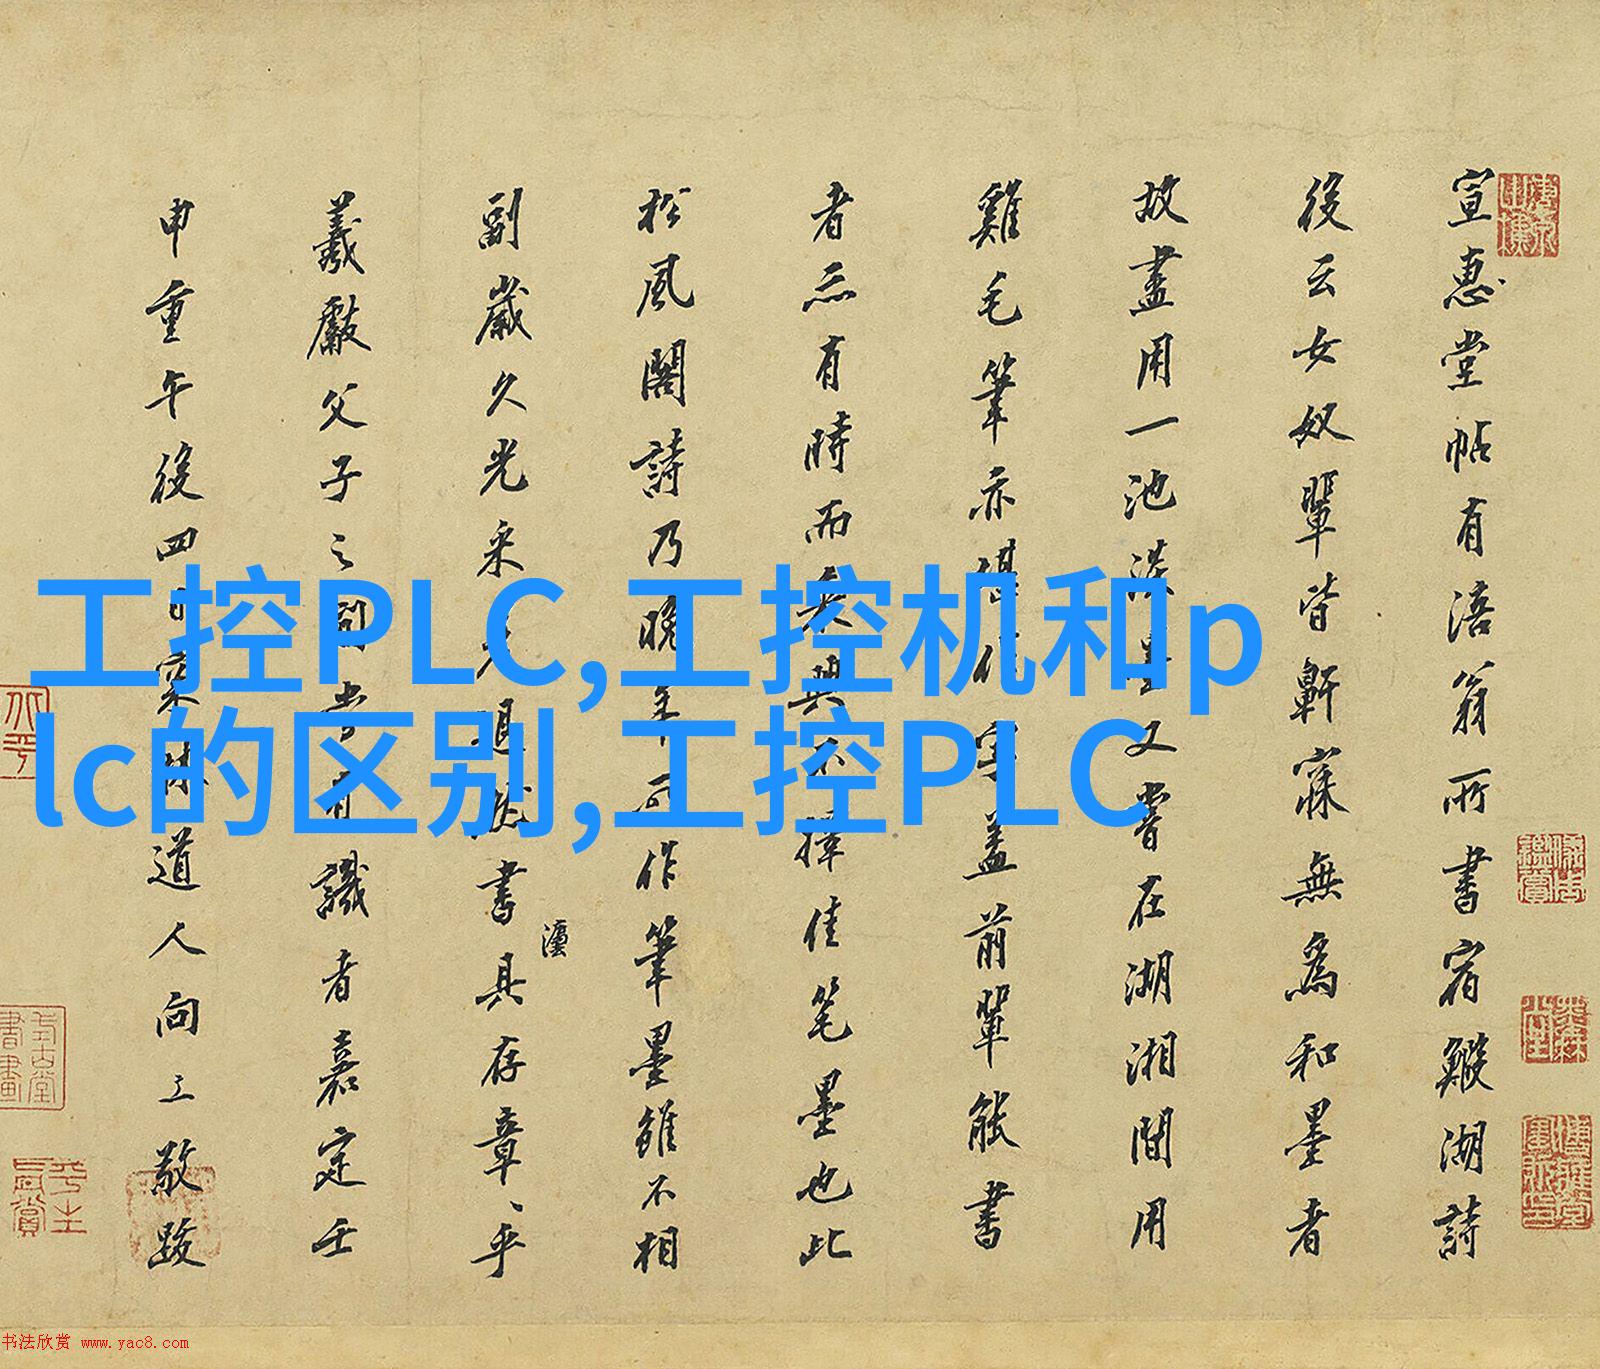 宣惠堂帖有涪翁所書宿鰕湖詩
後云女奴輩皆鼾寐無為和墨者
故盡用一池淡墨又嘗在湖湘間用
雞毛筆亦堪作字蓋前輩能書
者亦有時而
擇佳笔墨也此
松風閣詩乃晚年
作筆墨雖不相
副歲久光采
書具存章、乎
瀍
羲獻父子之
識者嘉定壬
申重午後四日
道人向
敬跋
工控PLC,工控机和p
lc的区别,工控PLC
书法欣赏 www.yac8.com